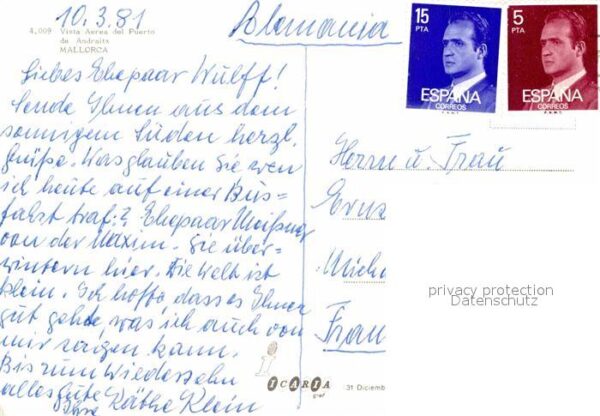 10.3.81
Alemania
4,009 Vista Aerea del Puerto
de Andraitx
MALLORCA
15
PTA
ESPAÑA
CORREOS
5
PTA
ESPAÑA
CORREOS
Liebes Ehepaar Wulff!
Sende Ihnen aus dem
sonnigem Süden herzl.
Grüße. Was glauben Sie wen
ich heute auf einer Bus=
fahrt traf:? Ehepaar Meißner
von der Maxim. Sie über-
wintern hier. Die Welt ist
klein. Ich hoffe, dass es Ihnen
gut gehde, was ich auch von
mir sagen kann.
Bis zum Wiedersehn
alles gute
Ihre Käthe Klein
Herrn u. Frau
Frau
privacy protection
Datenschutz
ICARIA
graf
31 Diciemb